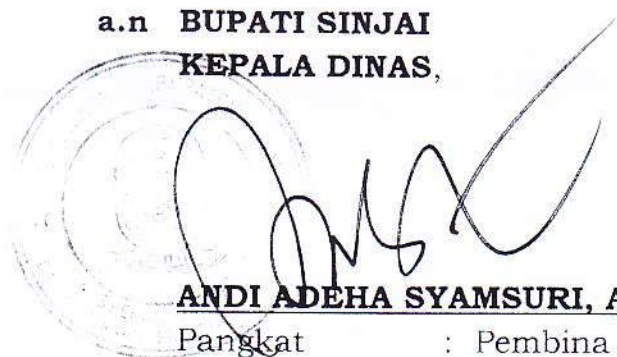 a.n BUPATI SINJAI
KEPALA DINAS,
ANDI ADEHA SYAMSURI, A
Pangkat : Pembina